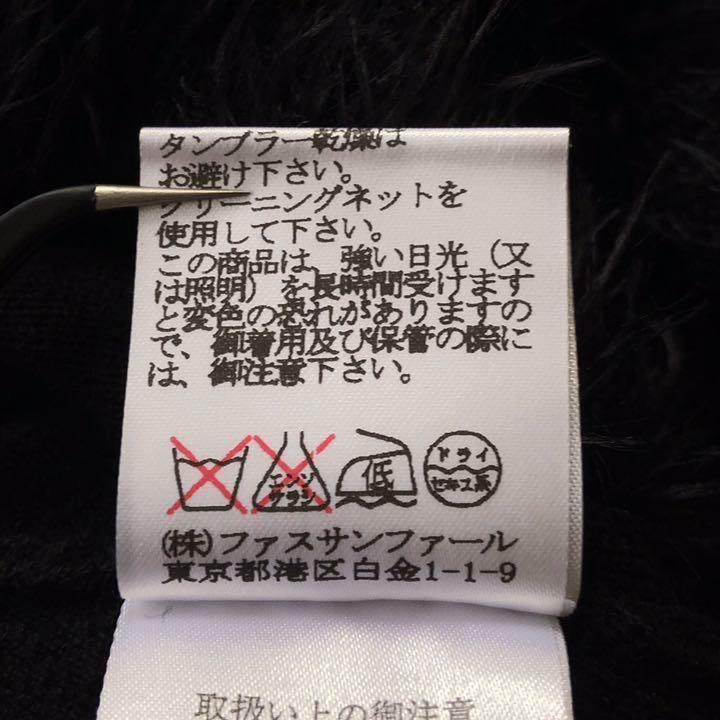 タンブラー乾燥は
お避け下さい。
クリーニングネットを
使用して下さい。
この商品は、強い日光（又
は照明）を長時間受けます
と変色の恐れがありますの
で、御着用及び保管の際に
は、御注意下さい。
エンソ サラシ 低 ドライ セキユ系
(株)ファスサンファール
東京都港区白金1-1-9
取扱い上の御注意